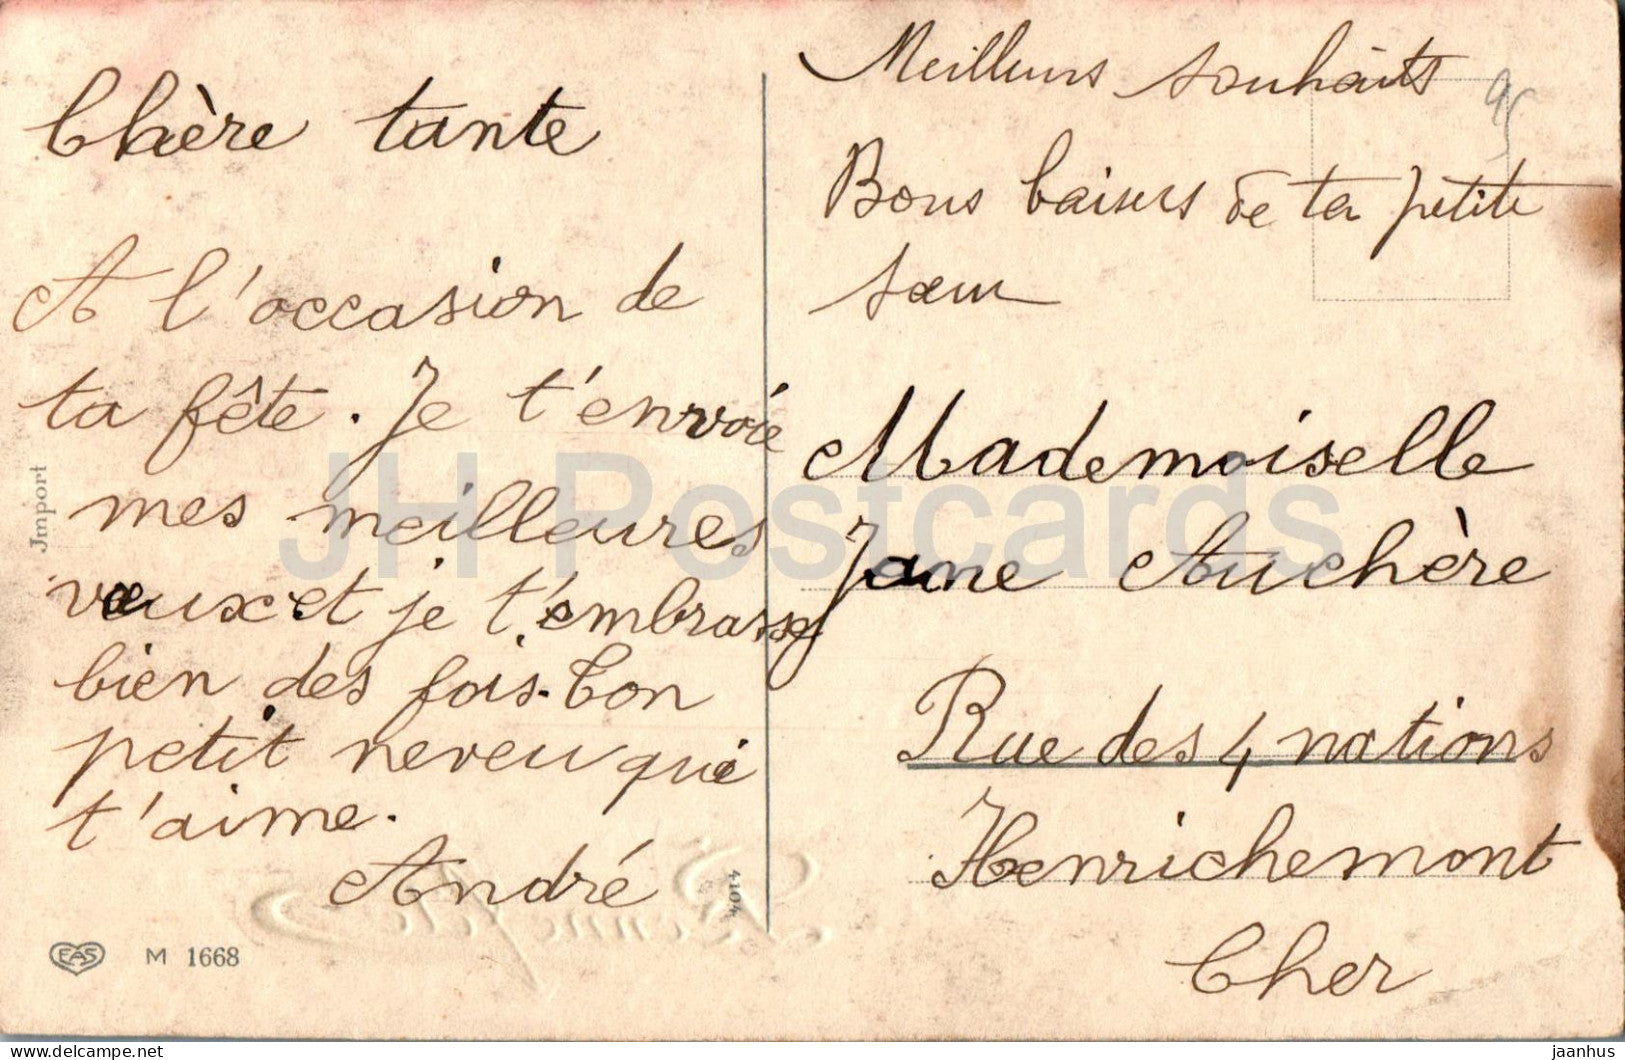 Chère tante
A l'occasion de
ta fête. Je t'envoie
mes meilleures
vœux et je t'embrasse
bien des fois. Ton
petit neveu qui
t'aime.
André
Meilleurs souhaits
Bons baisers de ta petite
sœur
Mademoiselle
Jane Auchère
Rue des 4 nations
Henrichemont
Cher
95
Jmport
4014
Bonne fête
EAS M 1668
JH Postcards
delcampe.net
jaanhus